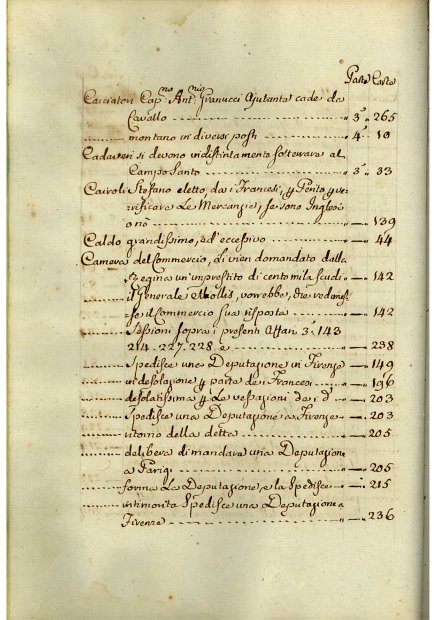 Parte Carte
Cacciatori Cap.no Ant.nio Granucci Ajutante cade da
Cavallo 3 265
montano in diversi posti 4 10
Cadaveri si devono indistintamente sotterrare al
Campo Santo 3 33
Cairoli Stefano eletto da i Francesi, p Perito p ve
rificare Le Mercanzie, se sono Inglesi
o nò 139
Caldo grandissimo, ed eccessivo 44
Camera del Commercio, Li vien domandato dalla
Regina un imprestito di cento mila scudi 142
il Generale Mollis, vorrebbe, che
se il Commercio sua risposta 142
Sessioni sopra i presenti Affari 3. 143
214. 227. 228 e 238
Spedisce una Deputazione in Firenze 149
in desolazione p parte de i Francesi 196
desolatissima p Le vessazioni de i d 203
Spedisce una Deputazione a Firenze 203
ritorno della detta 205
delibera di mandare una Deputazione
a Parigi 205
forma La Deputazione, e la Spedisce 215
intimorita Spedisce una Deputazione a
Firenze 236